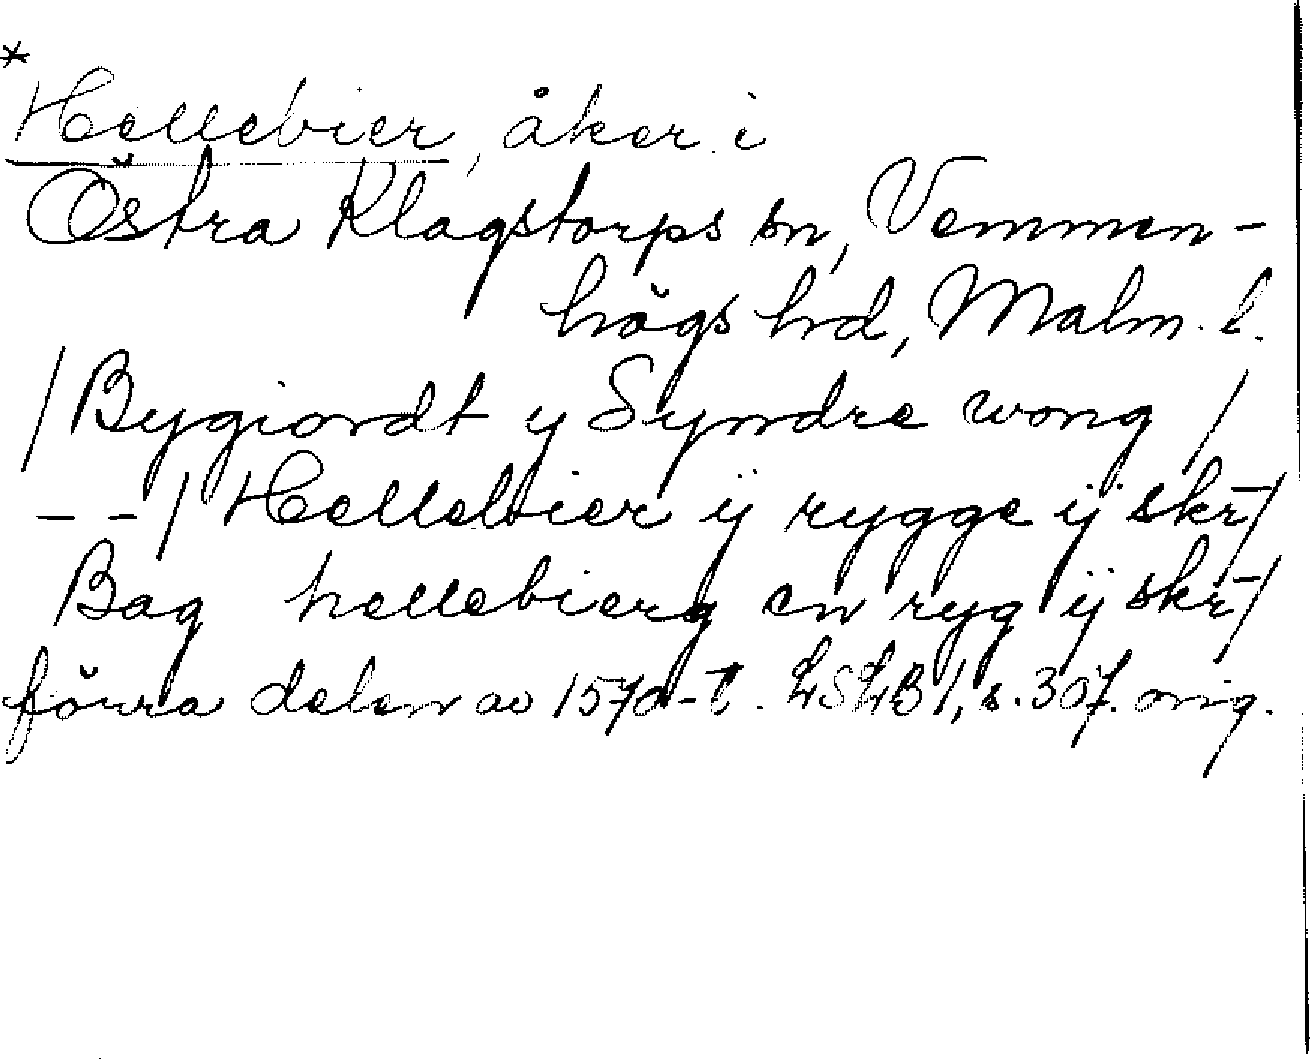 *
Hellebier, åker i
Östra Klagstorps sn, Vemmen-
högs hd, Malm. l.
/ Bygiordt y Syndre wong /
- - / Hellebier ij rygge ij skr̄ /
Bag hellebierg en ryg ij skr̄ /
förra delen av 1570-t. LSLB 1, s. 307. orig.